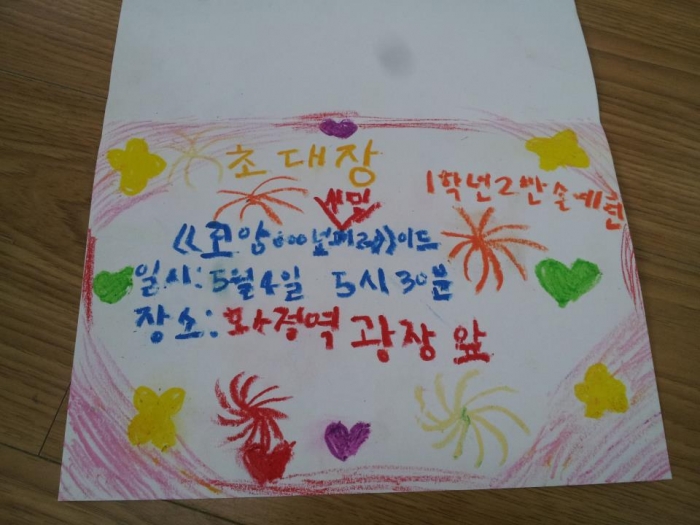 초대장
1학년2반 손예린
새밀
《고양600년퍼레》이드
일시:5월4일 5시30분
장소:화정역 광장 앞